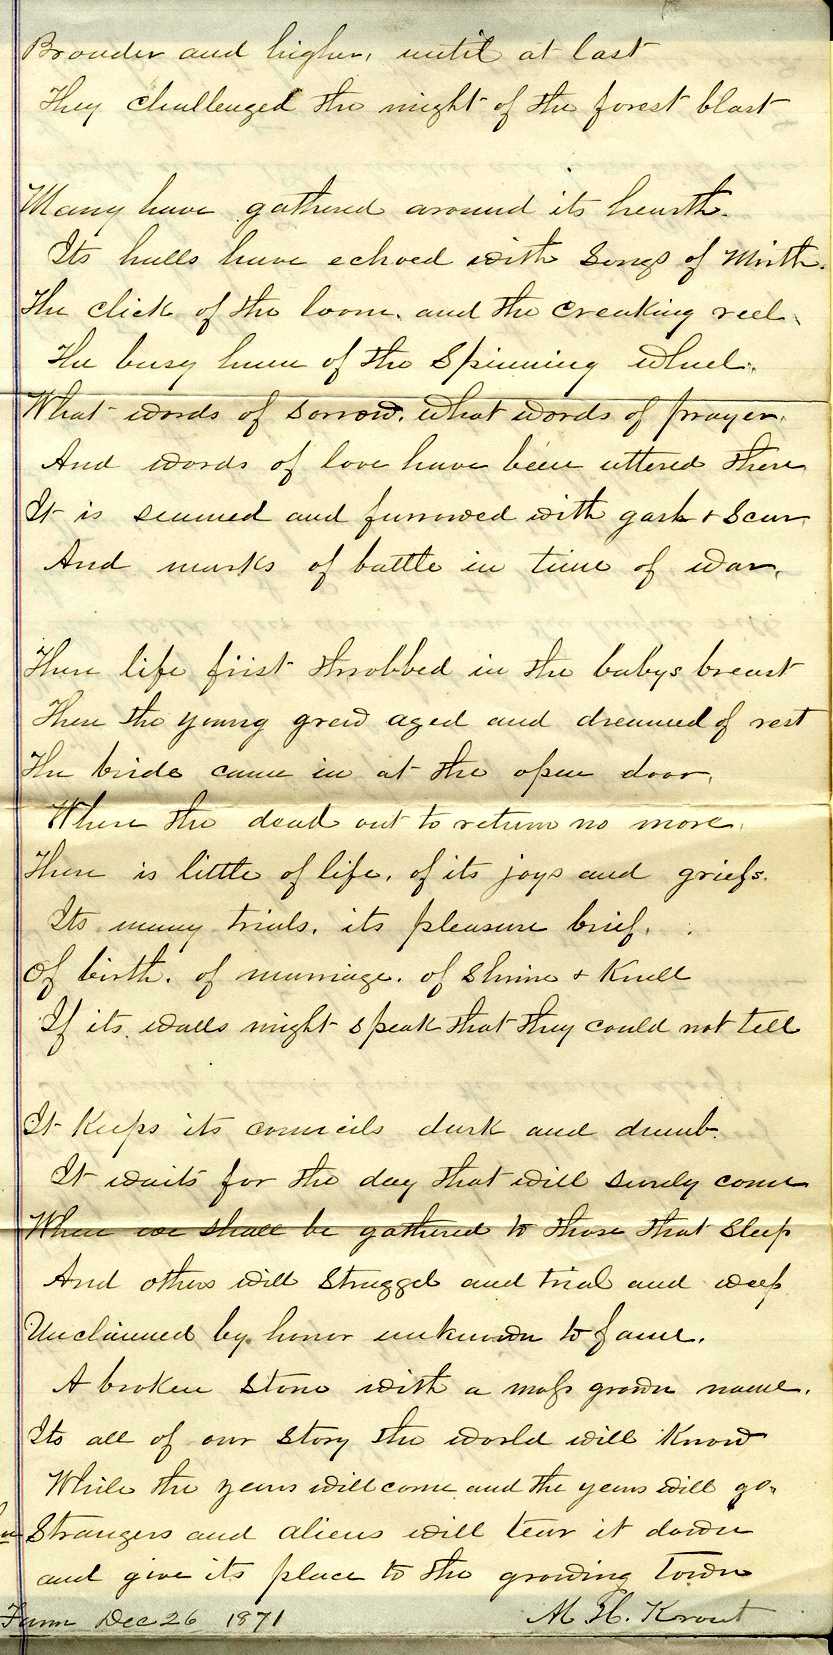 Broader and higher, until at last
They challenged the might of the forest blast
Many have gathered around its hearth.
Its halls have echoed with Songs of Mirth.
The click of the loom. and the creaking reel.
The busy hum of the Spinning wheel.
What words of sorrow. what words of prayer.
And words of love have been uttered there
It is seamed and furrowed with gash & Scar
And marks of battle in time of war.
There life first throbbed in the babys breast
There the young grew aged and dreamed of rest
The bride came in at the open door,
Where the dead out to return no more.
There is little of life, of its joys and griefs.
Its many trials. its pleasure brief.
Of birth. of marriage. of Shrine & Knell
If its walls might speak that they could not tell
It Keeps its councils dark and dumb.
It waits for the day that will surely come
When we shall be gathered to those that Sleep
And others will Struggel and trial and weep
Unclaimed by honor unknown to fame.
A broken Stone with a moss grown name.
Its all of our Story the world will Know
While the years will come and the years will go.
Strangers and aliens will tear it down
and give its place to the growing Town
Farm Dec 26 1871 M H. Krout